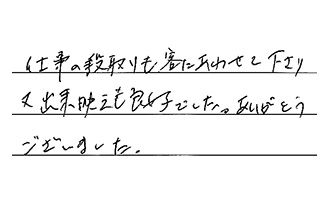 仕事の段取りも客にあわせて下さり
又出来映えも良好でした。ありがとう
ございました。